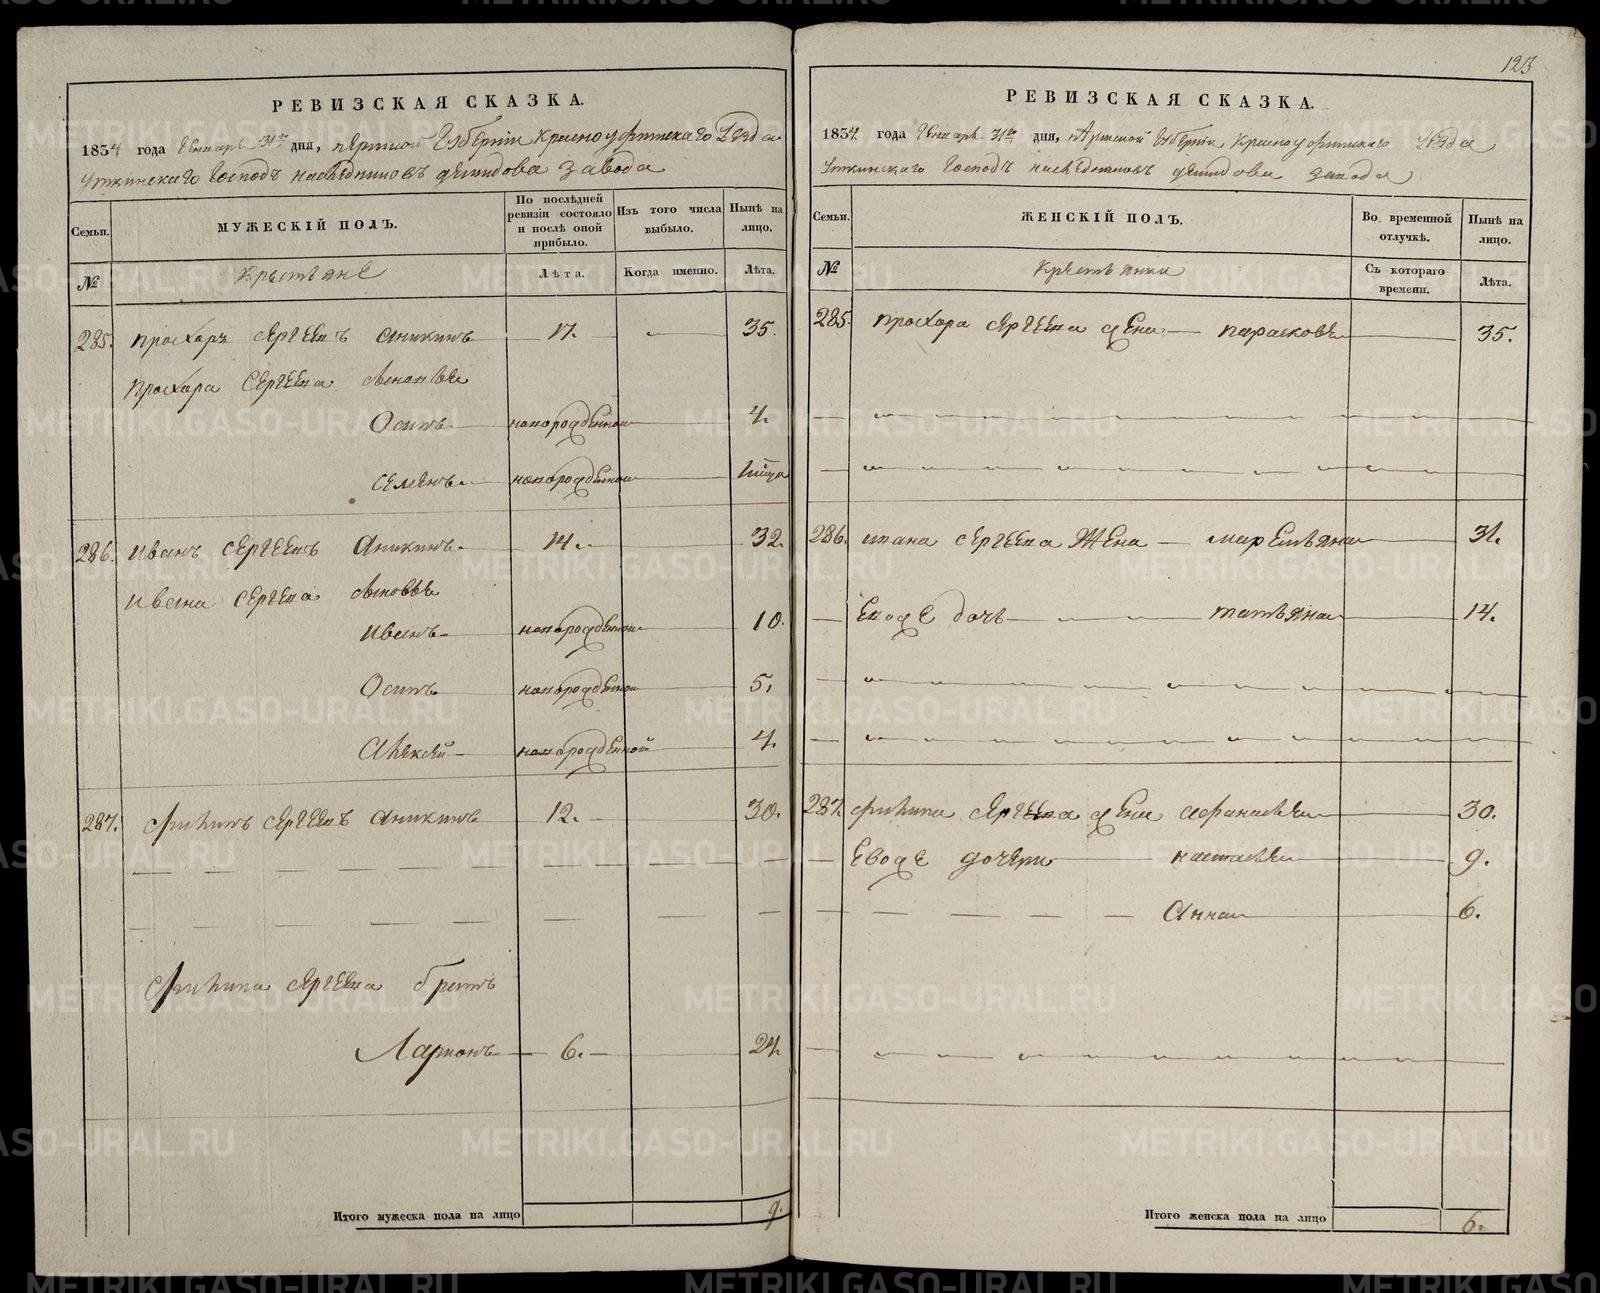 РЕВИЗСКАЯ СКАЗКА.
1834 года Генваря 31го дня, пермской Губернии красноуфимскаго Уезда
Уткинскаго Господъ наследниковъ демидова завода
Семьи.
МУЖЕСКІЙ ПОЛЪ.
По послѣдней ревизіи состояло и послѣ оной прибыло.
Изъ того числа выбыло.
Нынѣ на лицо.
№
Крестьяне
Лѣта.
Когда именно.
Лѣта.
285. прохоръ сергеевъ аникинъ 17. 35.
прохора Сергеева сыновья
Осипъ новорожденной 4.
новорожденной
286. иванъ сергеевъ аникинъ 14. 32.
ивана сергеева сыновья
иванъ новорожденной 10.
Осипъ новорожденной 5.
Алексей новорожденной 4.
287. филипъ сергеевъ аникинъ 12. 30.
филипа сергеева братъ
Ларионъ 6. 24.
Итого мужеска пола на лицо 9.
123
РЕВИЗСКАЯ СКАЗКА.
1834 года Генваря 31го дня, пермской Губернии красноуфимскаго Уезда
Уткинскаго Господъ наследниковъ демидова завода
Семьи.
ЖЕНСКІЙ ПОЛЪ.
Во временной отлучкѣ.
Нынѣ на лицо.
№
Крестьянки
Съ котораго времени.
Лѣта.
285. прохора сергеева жена парасковья 35.
286. ивана сергеева жена маремьяна 31.
Евоже дочь татьяна 14.
287. филипа сергеева жена афанасья 30.
Евоже дочери настасья 9.
Анна 6.
Итого женска пола на лицо 6.
METRIKI.GASO-URAL.RU